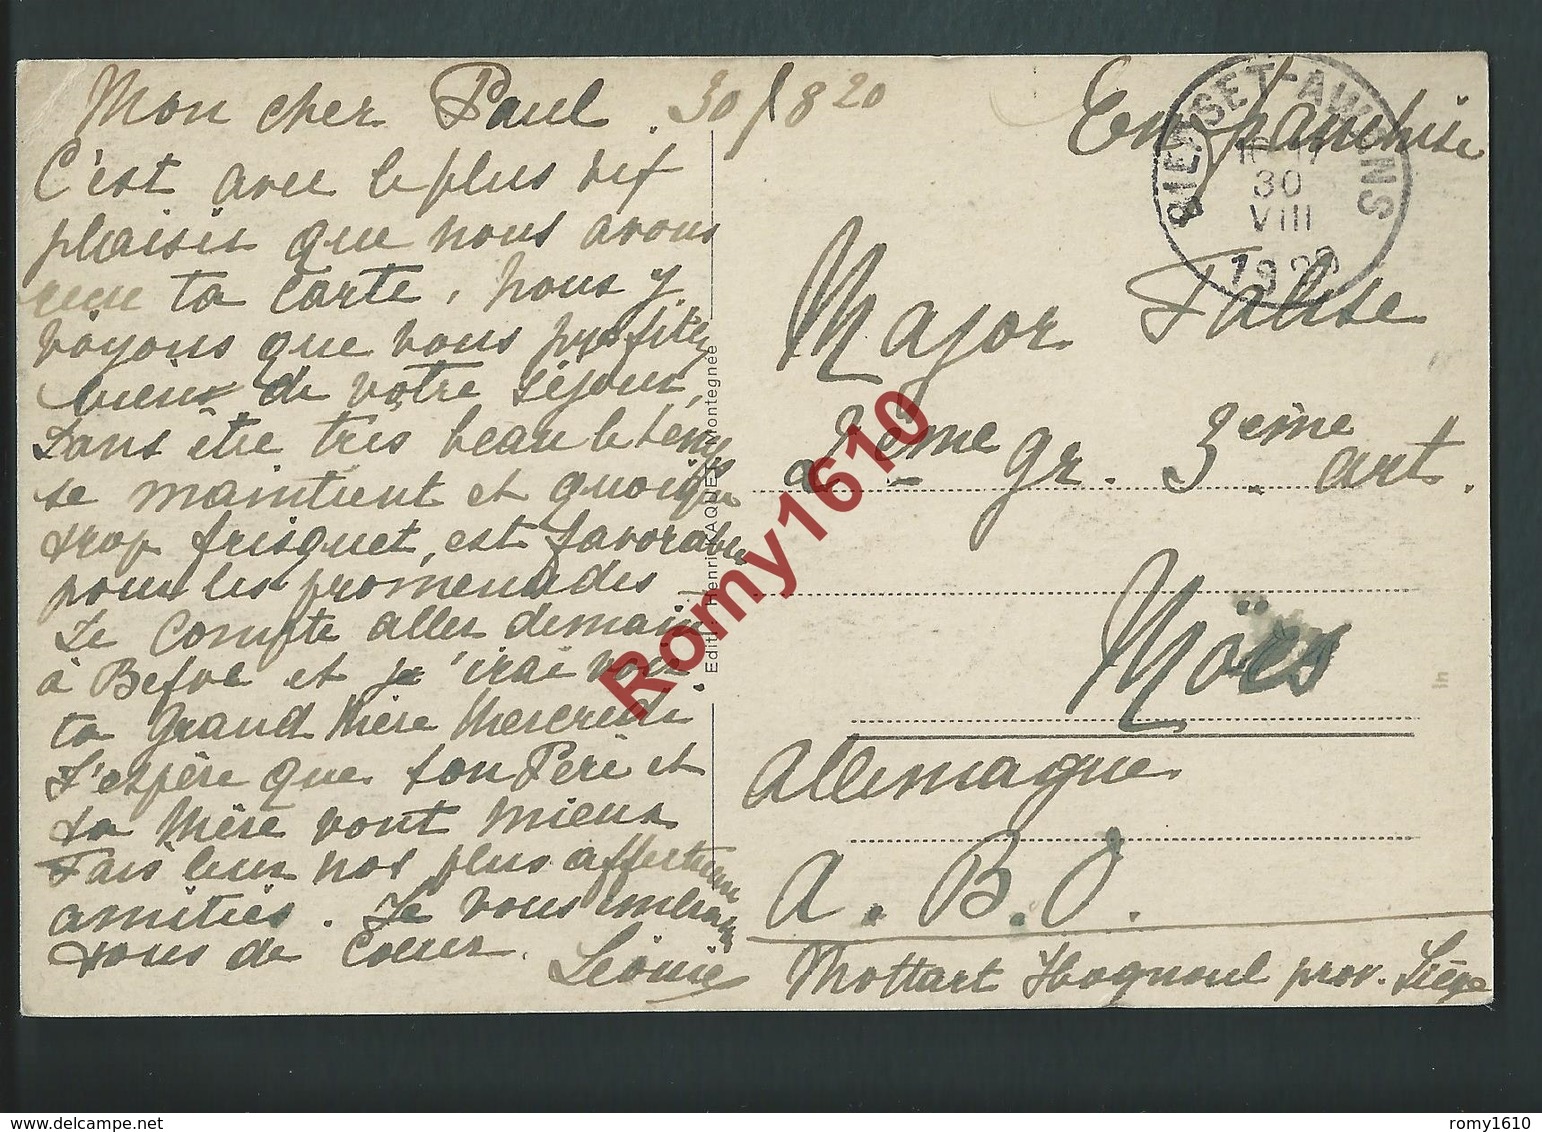 Mon cher Paul. 30/8 20
C'est avec le plus vif
plaisir que nous avons
reçu ta carte, nous y
voyons que vous profitez
bien de votre séjour,
Sans être très beau le temps
se maintient et quoique
trop frisquet, est favorable
pour les promenades
Je compte aller demain
à Befve et j'irai voir
ta grand Mère Mercredi
J'espère que ton Père et
ta Mère vont mieux
Fais leur nos plus affectueuses
amitiés. Je vous embrasse
tous de coeur.
Léonie
Edit. Henri KAQUET, Montegnée
En franchise
BIERSET-AWANS
16-17
30
VIII
1920
Major Falise
2ème gr. 3ème art.
Moërs
Allemagne
A.B.O.
Mottart Hognoul prov. Liége
Romy1610
www.delcampe.net
romy1610